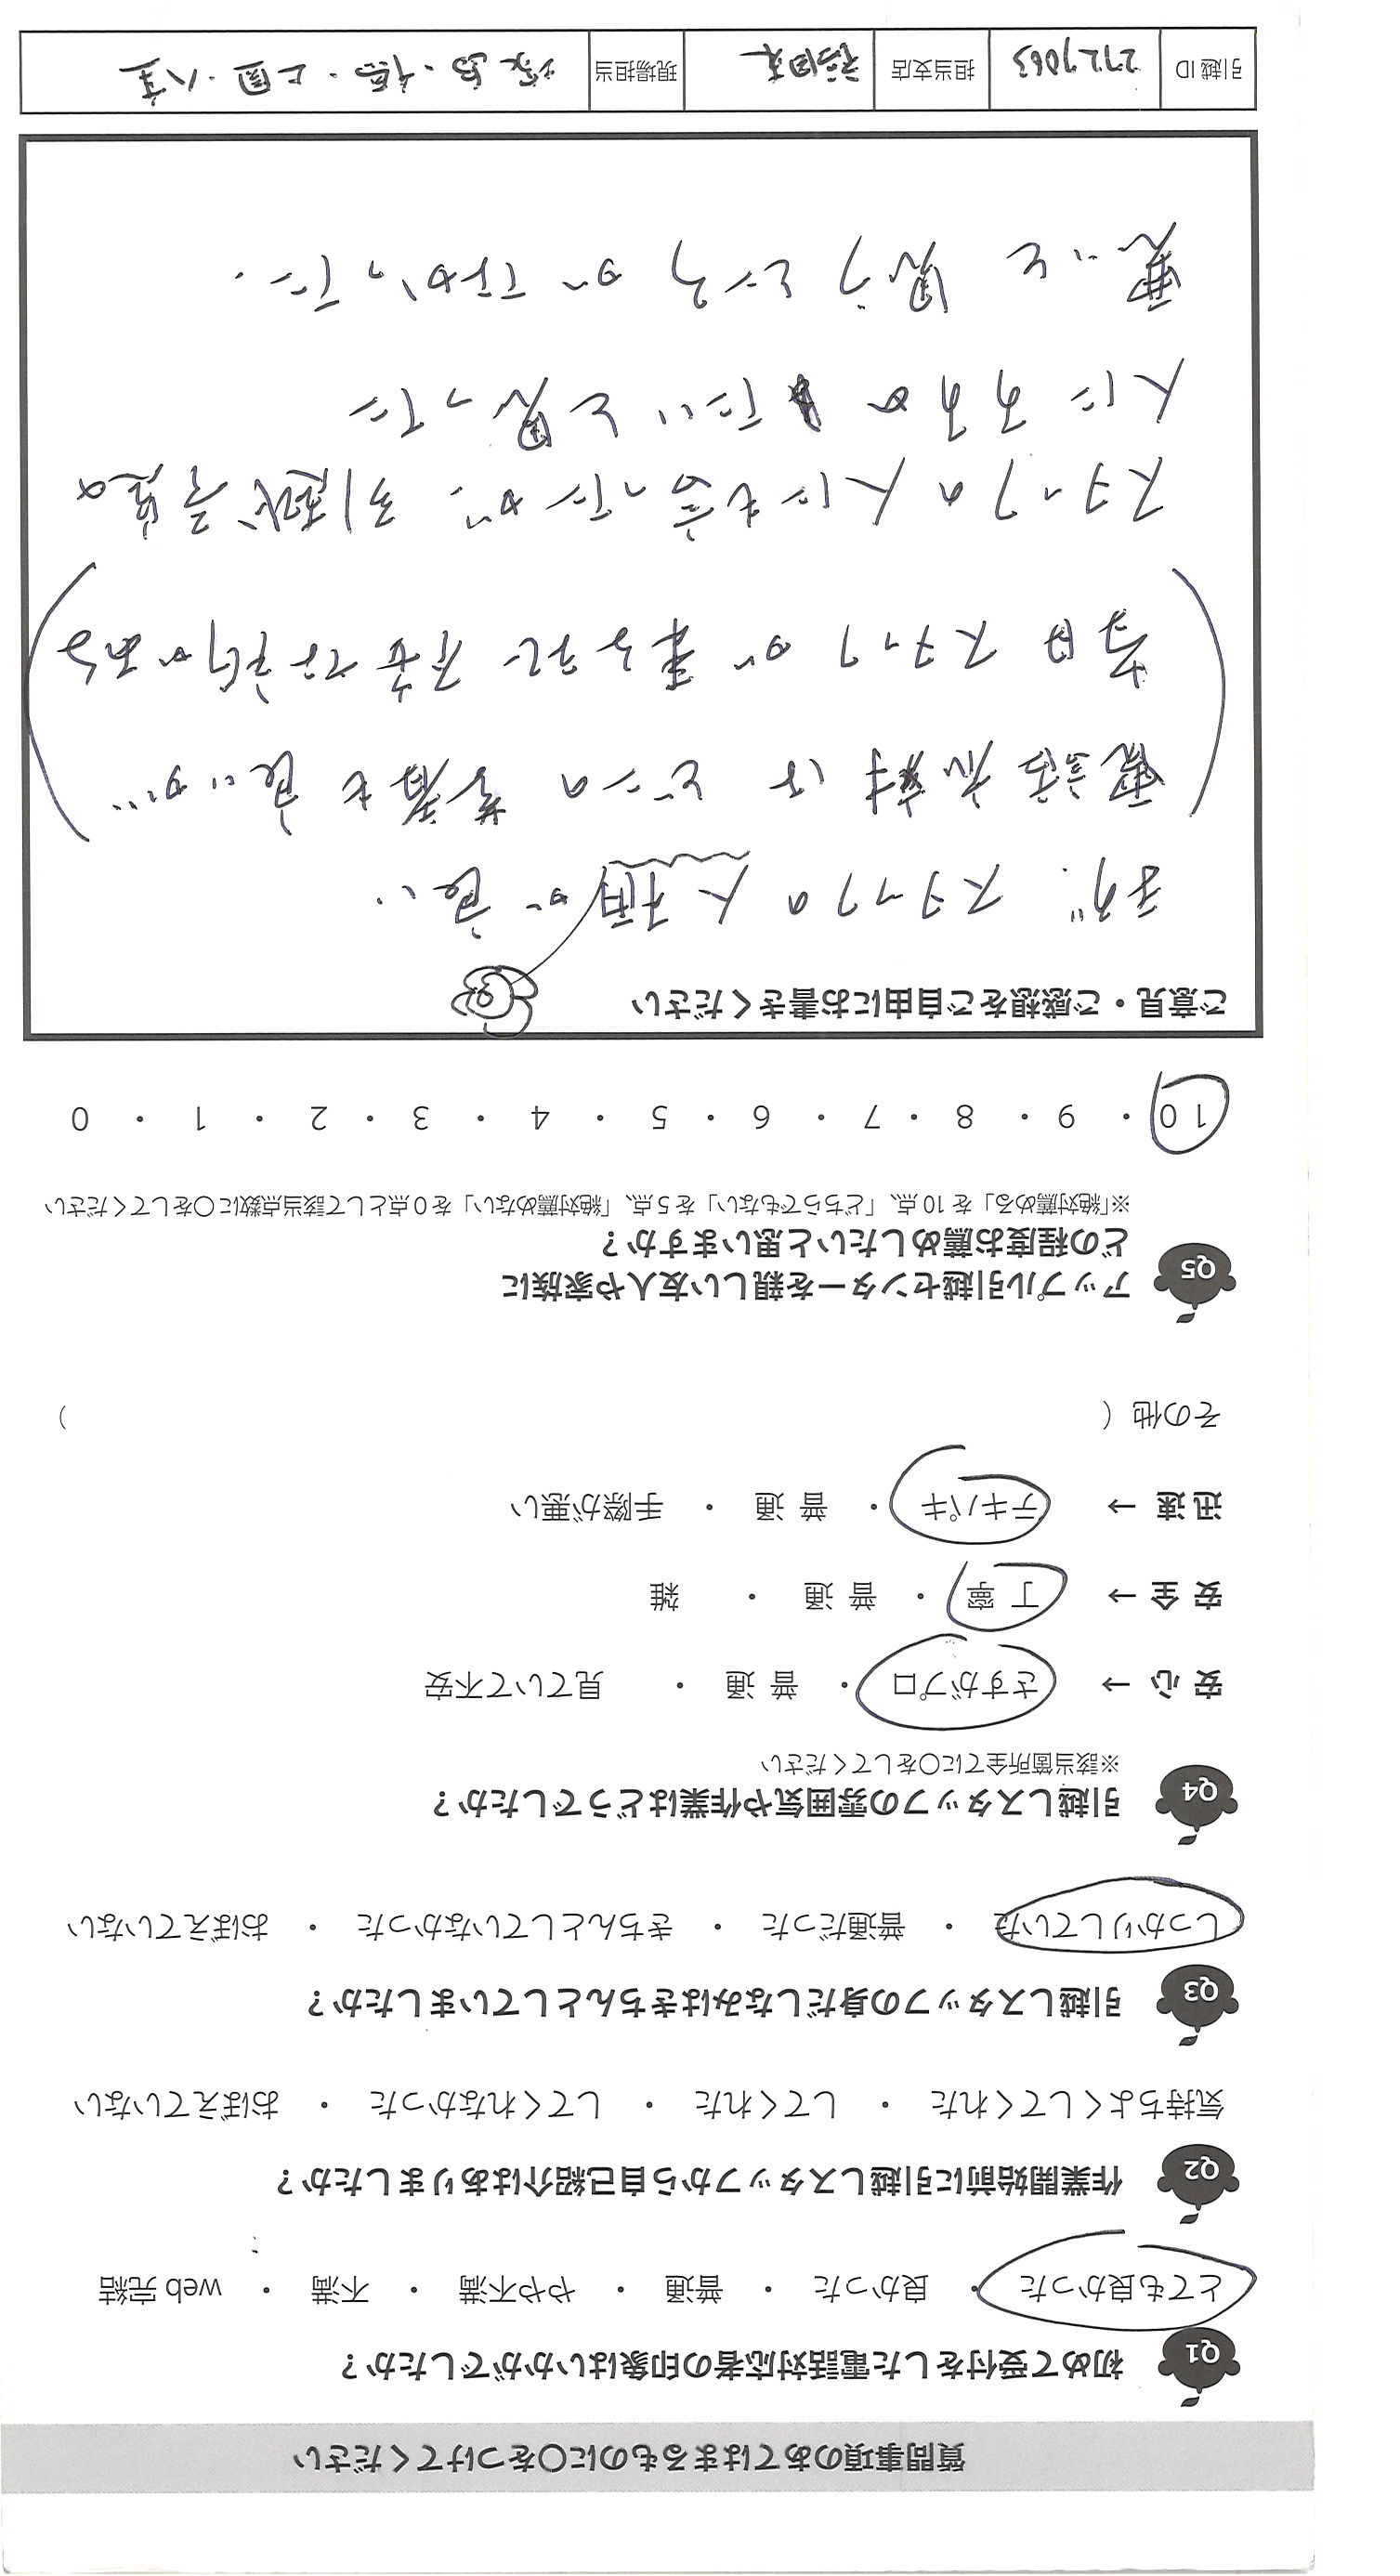 質問事項のあてはまるものに〇をつけてください
Q1 初めて受付をした電話対応者の印象はいかがでしたか？
とても良かった ・ 良かった ・ 普通 ・ やや不満 ・ 不満 ・ web 完結
Q2 作業開始前に引越しスタッフから自己紹介はありましたか？
気持ちよくしてくれた ・ してくれた ・ してくれなかった ・ おぼえていない
Q3 引越しスタッフの身だしなみはきちんとしていましたか？
しっかりしていた ・ 普通だった ・ きちんとしていなかった ・ おぼえていない
Q4 引越しスタッフの雰囲気や作業はどうでしたか？
※該当箇所全てに〇をしてください
安 心 → さすがプロ ・ 普 通 ・ 見ていて不安
安 全 → 丁 寧 ・ 普 通 ・ 雑
迅 速 → テキパキ ・ 普 通 ・ 手際が悪い
その他（ ）
Q5 アップル引越センターを親しい友人や家族に
どの程度お薦めしたいと思いますか？
※「絶対薦める」を 10 点、「どちらでもない」を 5 点、「絶対薦めない」を 0 点として該当点数に〇をしてください
10 ・ 9 ・ 8 ・ 7 ・ 6 ・ 5 ・ 4 ・ 3 ・ 2 ・ 1 ・ 0
ご意見・ご感想をご自由にお書きください
まず、スタッフの人柄が良い。
電話応対はどこの業者も良いが…
当日スタッフが来るまで不安な所がある
スタッフの人にも言ったが、引越き量の
人にするのみたいと思った
思いと思うところがなかった。
引越 ID 2727063 担当支店 稲田支 現場担当 ・上園・八重